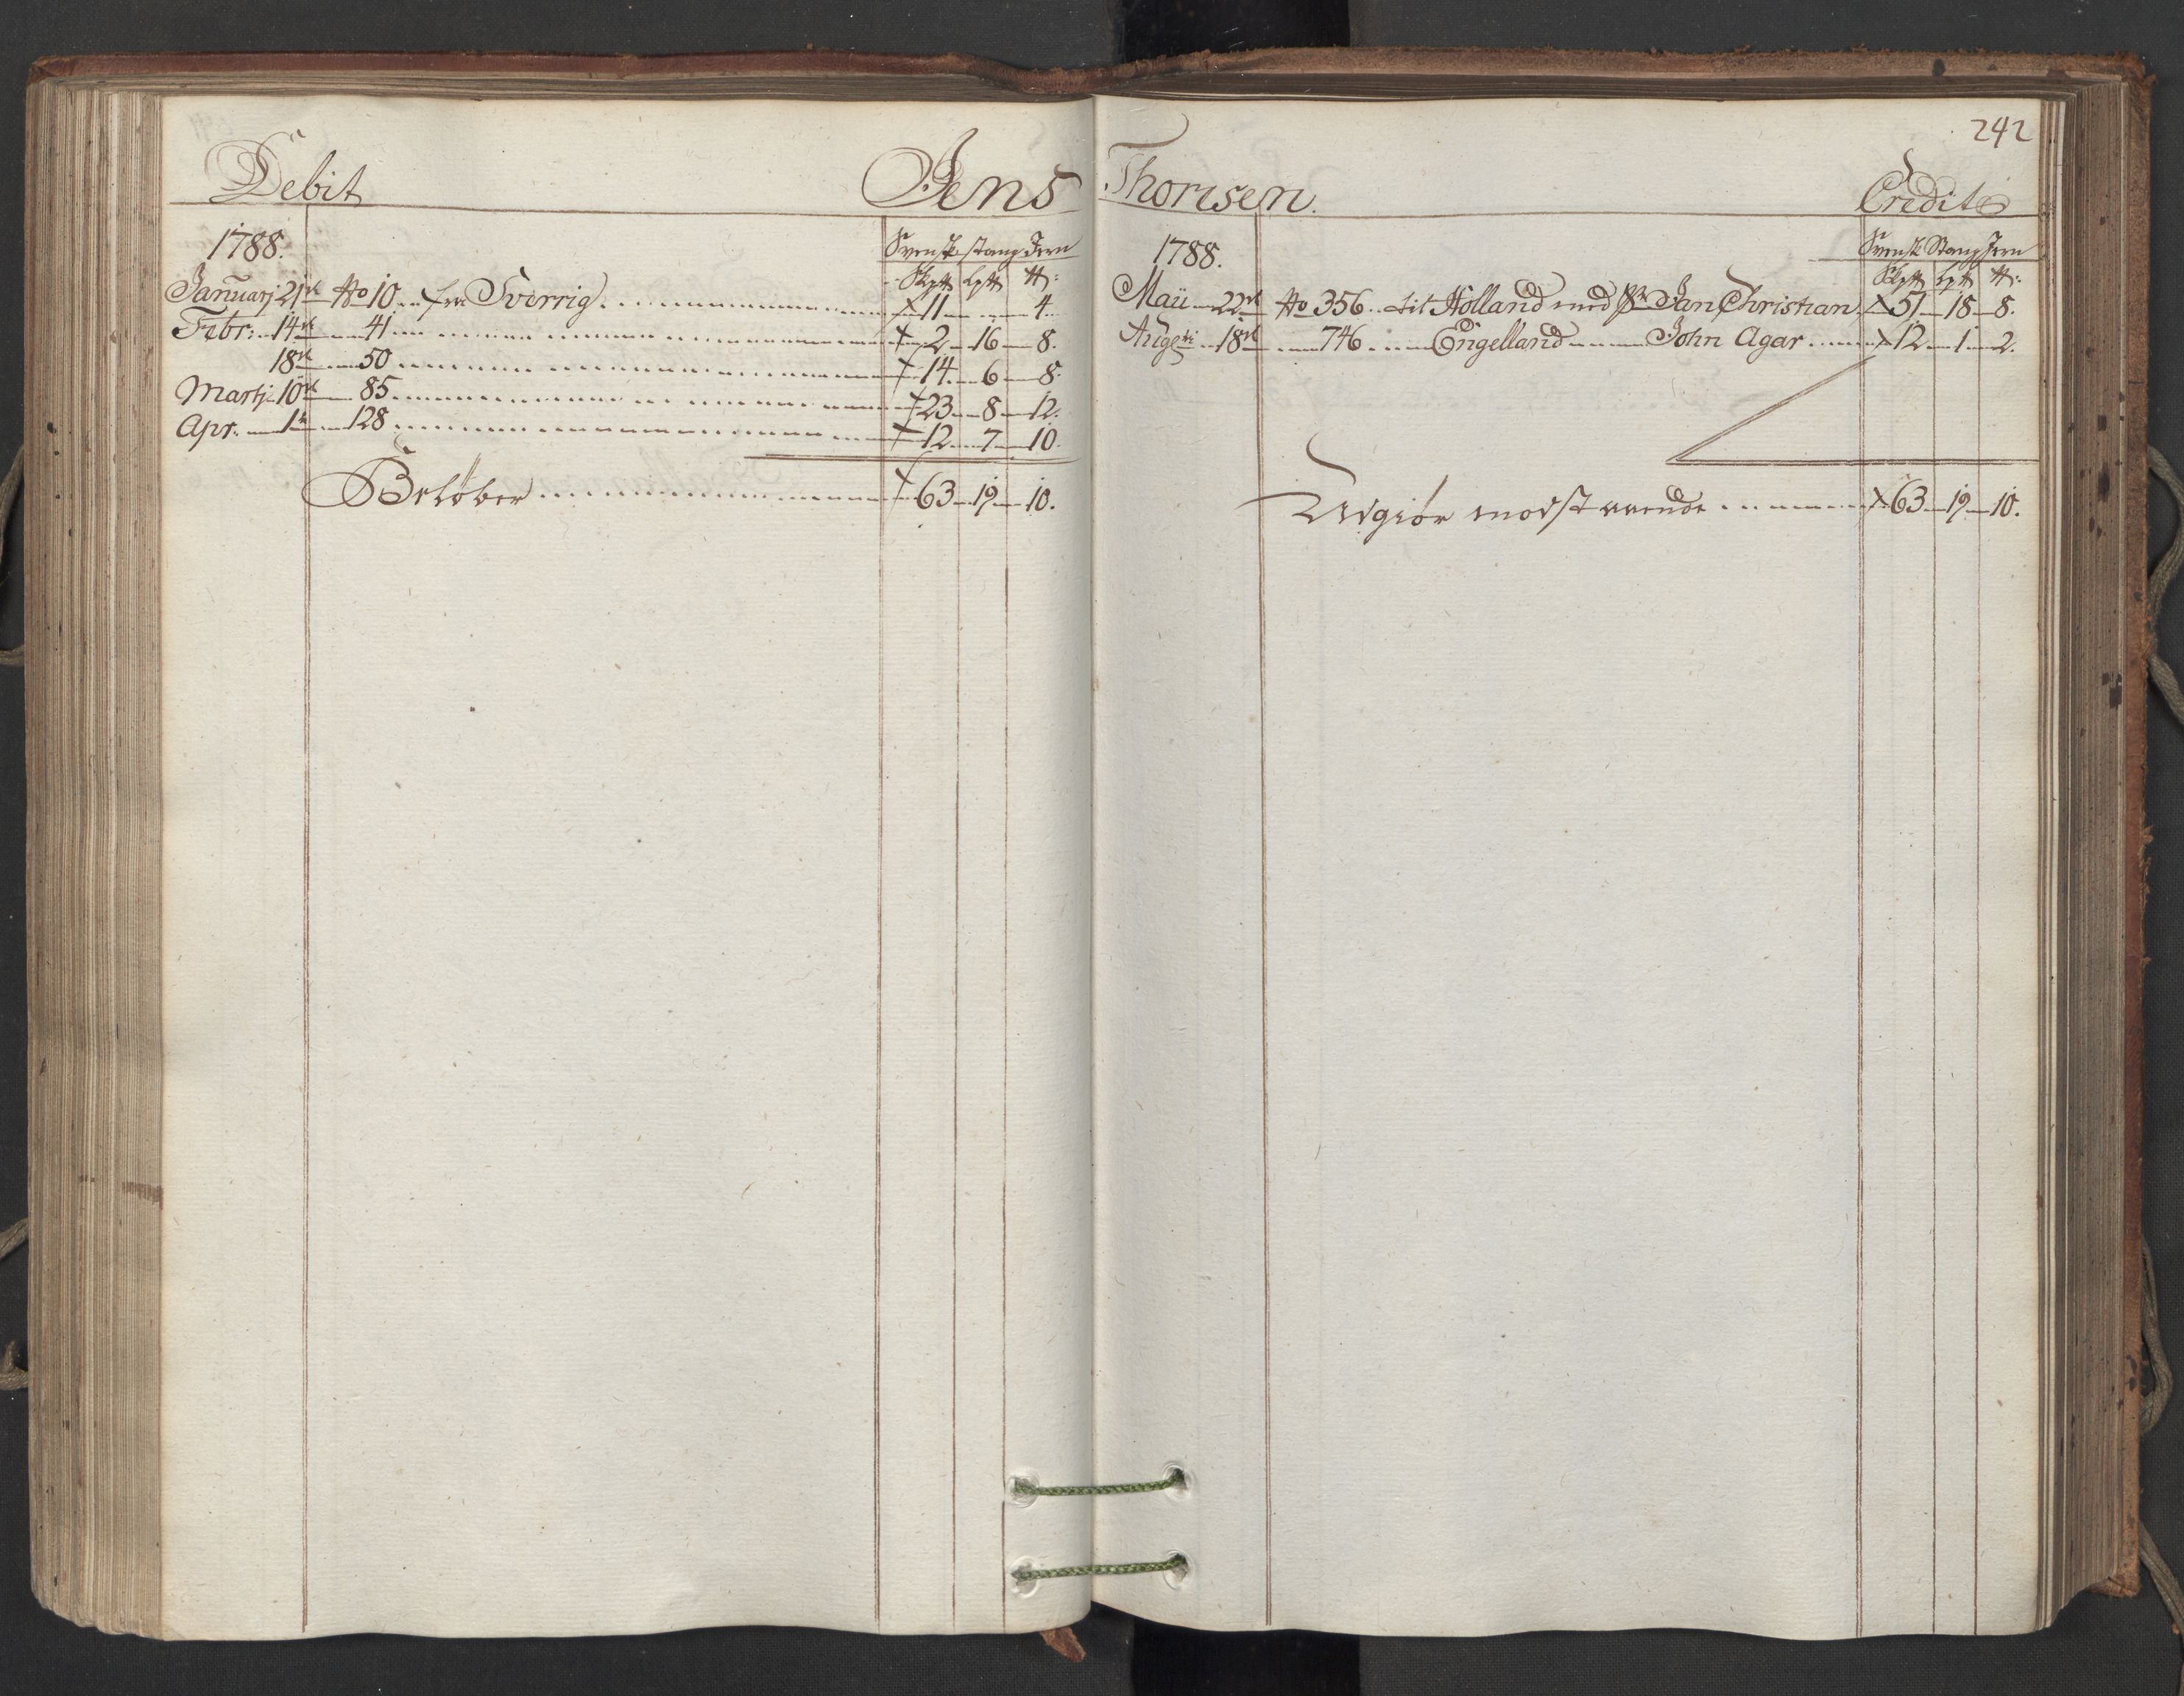 242
Debit Jens Thomsen. Credit
1788. Svensk stang Jern
Sk℔ L℔ ℔:
Januarj 21de No 10 .. fra Sverrig. 11 4.
Febr: 14de 41 2 16 8.
18de 50 14 6 8.
Martj 10de 85 23 8 12.
Apr. 1te 128 12 7 10.
Beløber 63 19 10.
1788. Svensk Stang Jern
Sk℔ L℔ ℔:
Maii 22de No 356 .. til Holland med Sr Jan Christian 51 18 8.
Augsti 18de 746 Engelland John Agar 12 1 2.
Udgiør modstaaende 63 19 10.